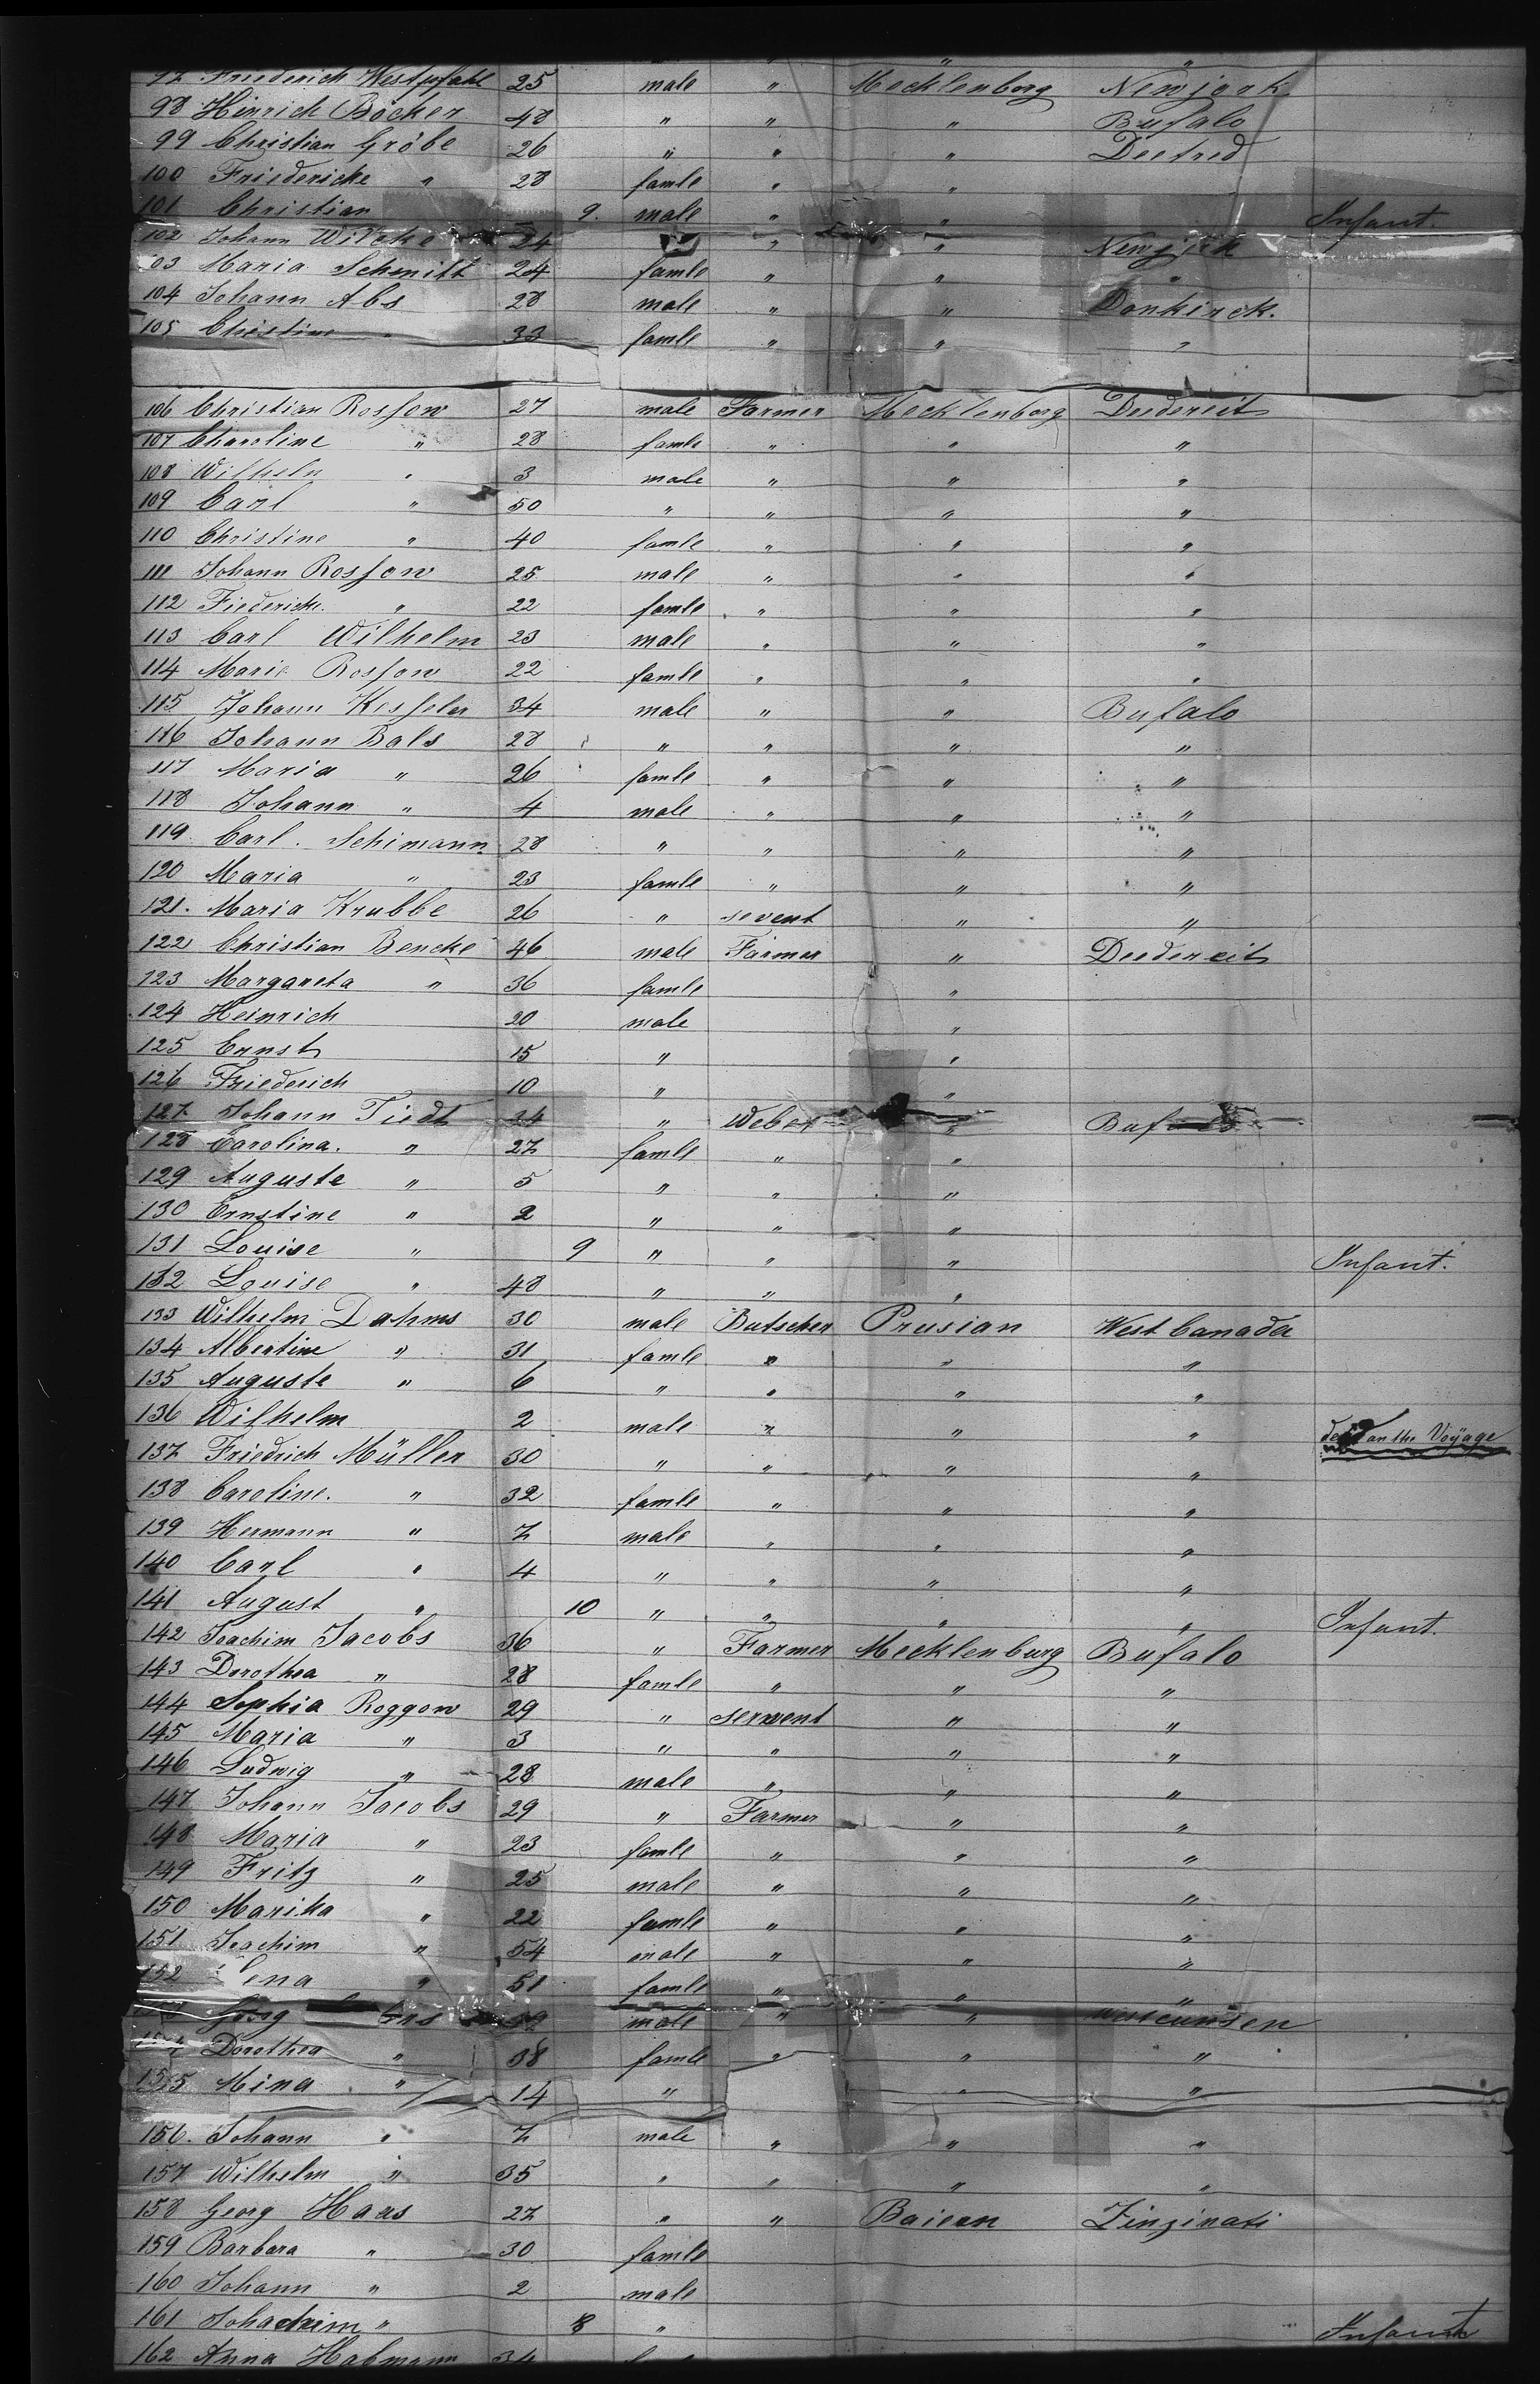 " " "
97 Friederich Westpfahl 25 male " Mecklenborg Newjork
98 Hinrich Böcker 48 " " " Bufalo
99 Christian Gröbe 26 " " " Deetred
100 Friedericke " 28 famle " "
101 Christian 9 male " " Infant.
102 Johann Wilcke 24 " " Newjork
103 Maria Schmitt 24 famle " " "
104 Johann Abs 28 male " " Donkirck.
105 Christine " 33 famle " " "
106 Christian Rossow 27 male Farmer Mecklenborg Deedereit
107 Charoline " 28 famle " " "
108 Wilheln " 3 male " " "
109 Carl " 50 " " " "
110 Christine " 40 famle " " "
111 Johann Rossow 25 male " " "
112 Fiedericke " 22 famle " " "
113 Carl Wilhelm 23 male " " "
114 Marie Rossow 22 famle " " "
115 Johann Kessler 34 male " " Bufalo
116 Johann Bals 28 " " " "
117 Maria " 26 famle " " "
118 Johann " 4 male " " "
119 Carl. Schimann 28 " " " "
120 Maria " 23 famle " " "
121. Maria Krubbe 26 " sevent " "
122 Christian Bencke 46 male Farmer " Deedereit
123 Margareta " 36 famle "
124 Heinrich 20 male "
125 Ernst 15 " "
126 Friederich 10 " "
127 Johann Tiedt 34 " Weber "
128 Carolina. " 27 famle " "
129 Auguste " 5 " " "
130 Ernstine " 2 " " "
131 Louise " 9 " " " Infant.
132 Louise " 48 " " "
133 Wilhelm Dahms 30 male Butscher Prusian West Canada
134 Albertine " 31 famle " " "
135 Auguste " 6 " " " "
136 Wilhelm 2 male " " " an the Voyage
137 Friedrich Müller 30 " " " "
138 Caroline. " 32 famle " " "
139 Hermann " 7 male " " "
140 Carl " 4 " " " "
141 August " 10 " " " " Infant.
142 Joachim Jacobs 36 " Farmer Mecklenburg Bufalo
143 Dorothea " 28 famle " " "
144 Sophia Roggow 29 " servent " "
145 Maria " 3 " " " "
146 Ludwig " 28 male " " "
147 Johann Jacobs 29 " Farmer " "
148 Maria " 23 famle " " "
149 Fritz " 25 male " " "
150 Marika " 22 famle " " "
151 Joachim " 54 male " " "
152 Lena " 51 famle " " "
Georg male " "
154 Dorothea " 38 famle " " "
155 Mina " 14 " " "
156. Johann " 7 male " " "
157 Wilhelm " 35 " " " "
158 Georg Haas 27 " " Baiern Zinzinati
159 Barbara " 30 famle
160 Johann " 2 male
161 Johachim " 8 " Infant
162 Anna Habmann 34